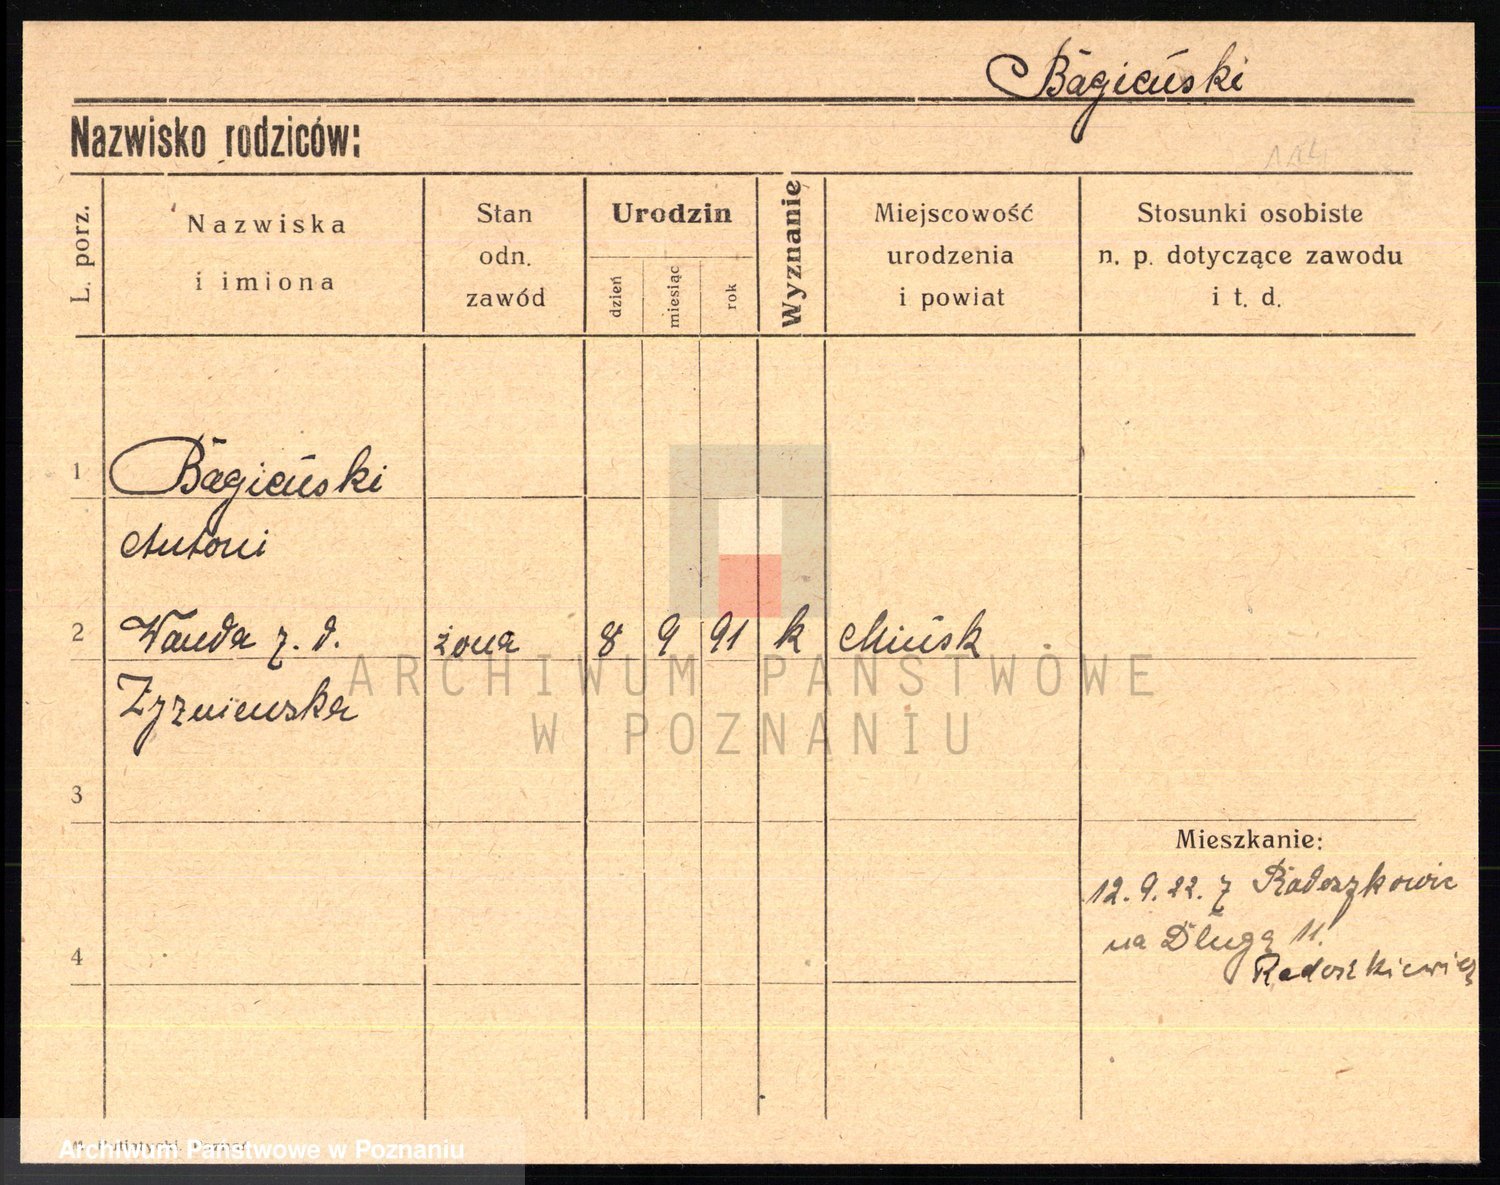 Bagieński
Nazwisko rodziców:
114
L. porz.
Nazwiska
i imiona
Stan
odn.
zawód
Urodzin
dzień
miesiąc
rok
Wyznanie
Miejscowość
urodzenia
i powiat
Stosunki osobiste
n. p. dotyczące zawodu
i t. d.
1
Bagieński
Antoni
2
Wanda z. d.
żona
8
9
91
k
Mińsk
Zyzniewska
ARCHIWUM PAŃSTWOWE
W POZNANIU
3
Mieszkanie:
12.9.22. z Radoszkowic
na Długą 11.
4
Radoszkiewicz
Archiwum Państwowe w Poznaniu